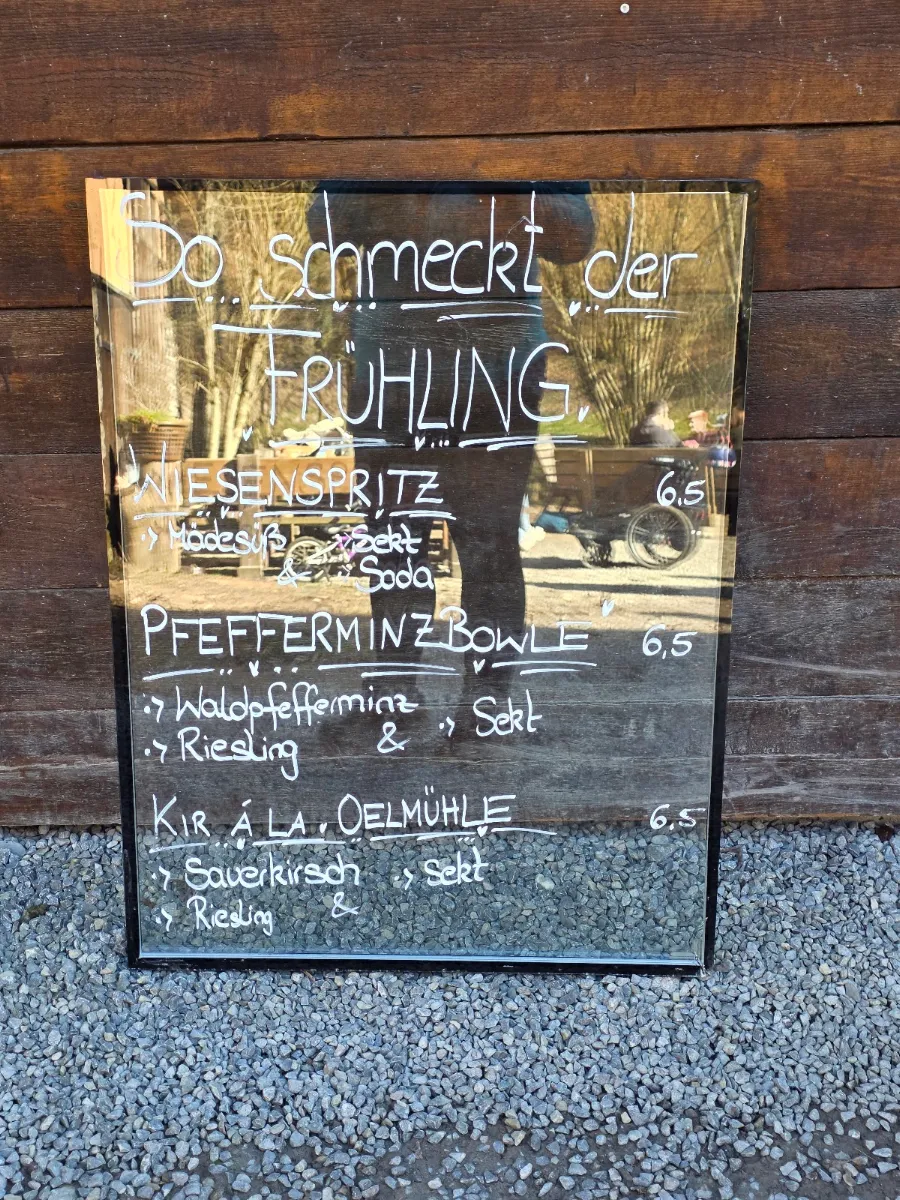 So schmeckt der
FRÜHLING
WIESENSPRITZ 6,5
·> Mädesüß ·> Sekt
& ·> Soda
PFEFFERMINZBOWLE 6,5
·> Waldpfefferminz ·> Sekt
·> Riesling &
KIR Á LA OELMÜHLE 6,5
·> Sauerkirsch ·> Sekt
·> Riesling &